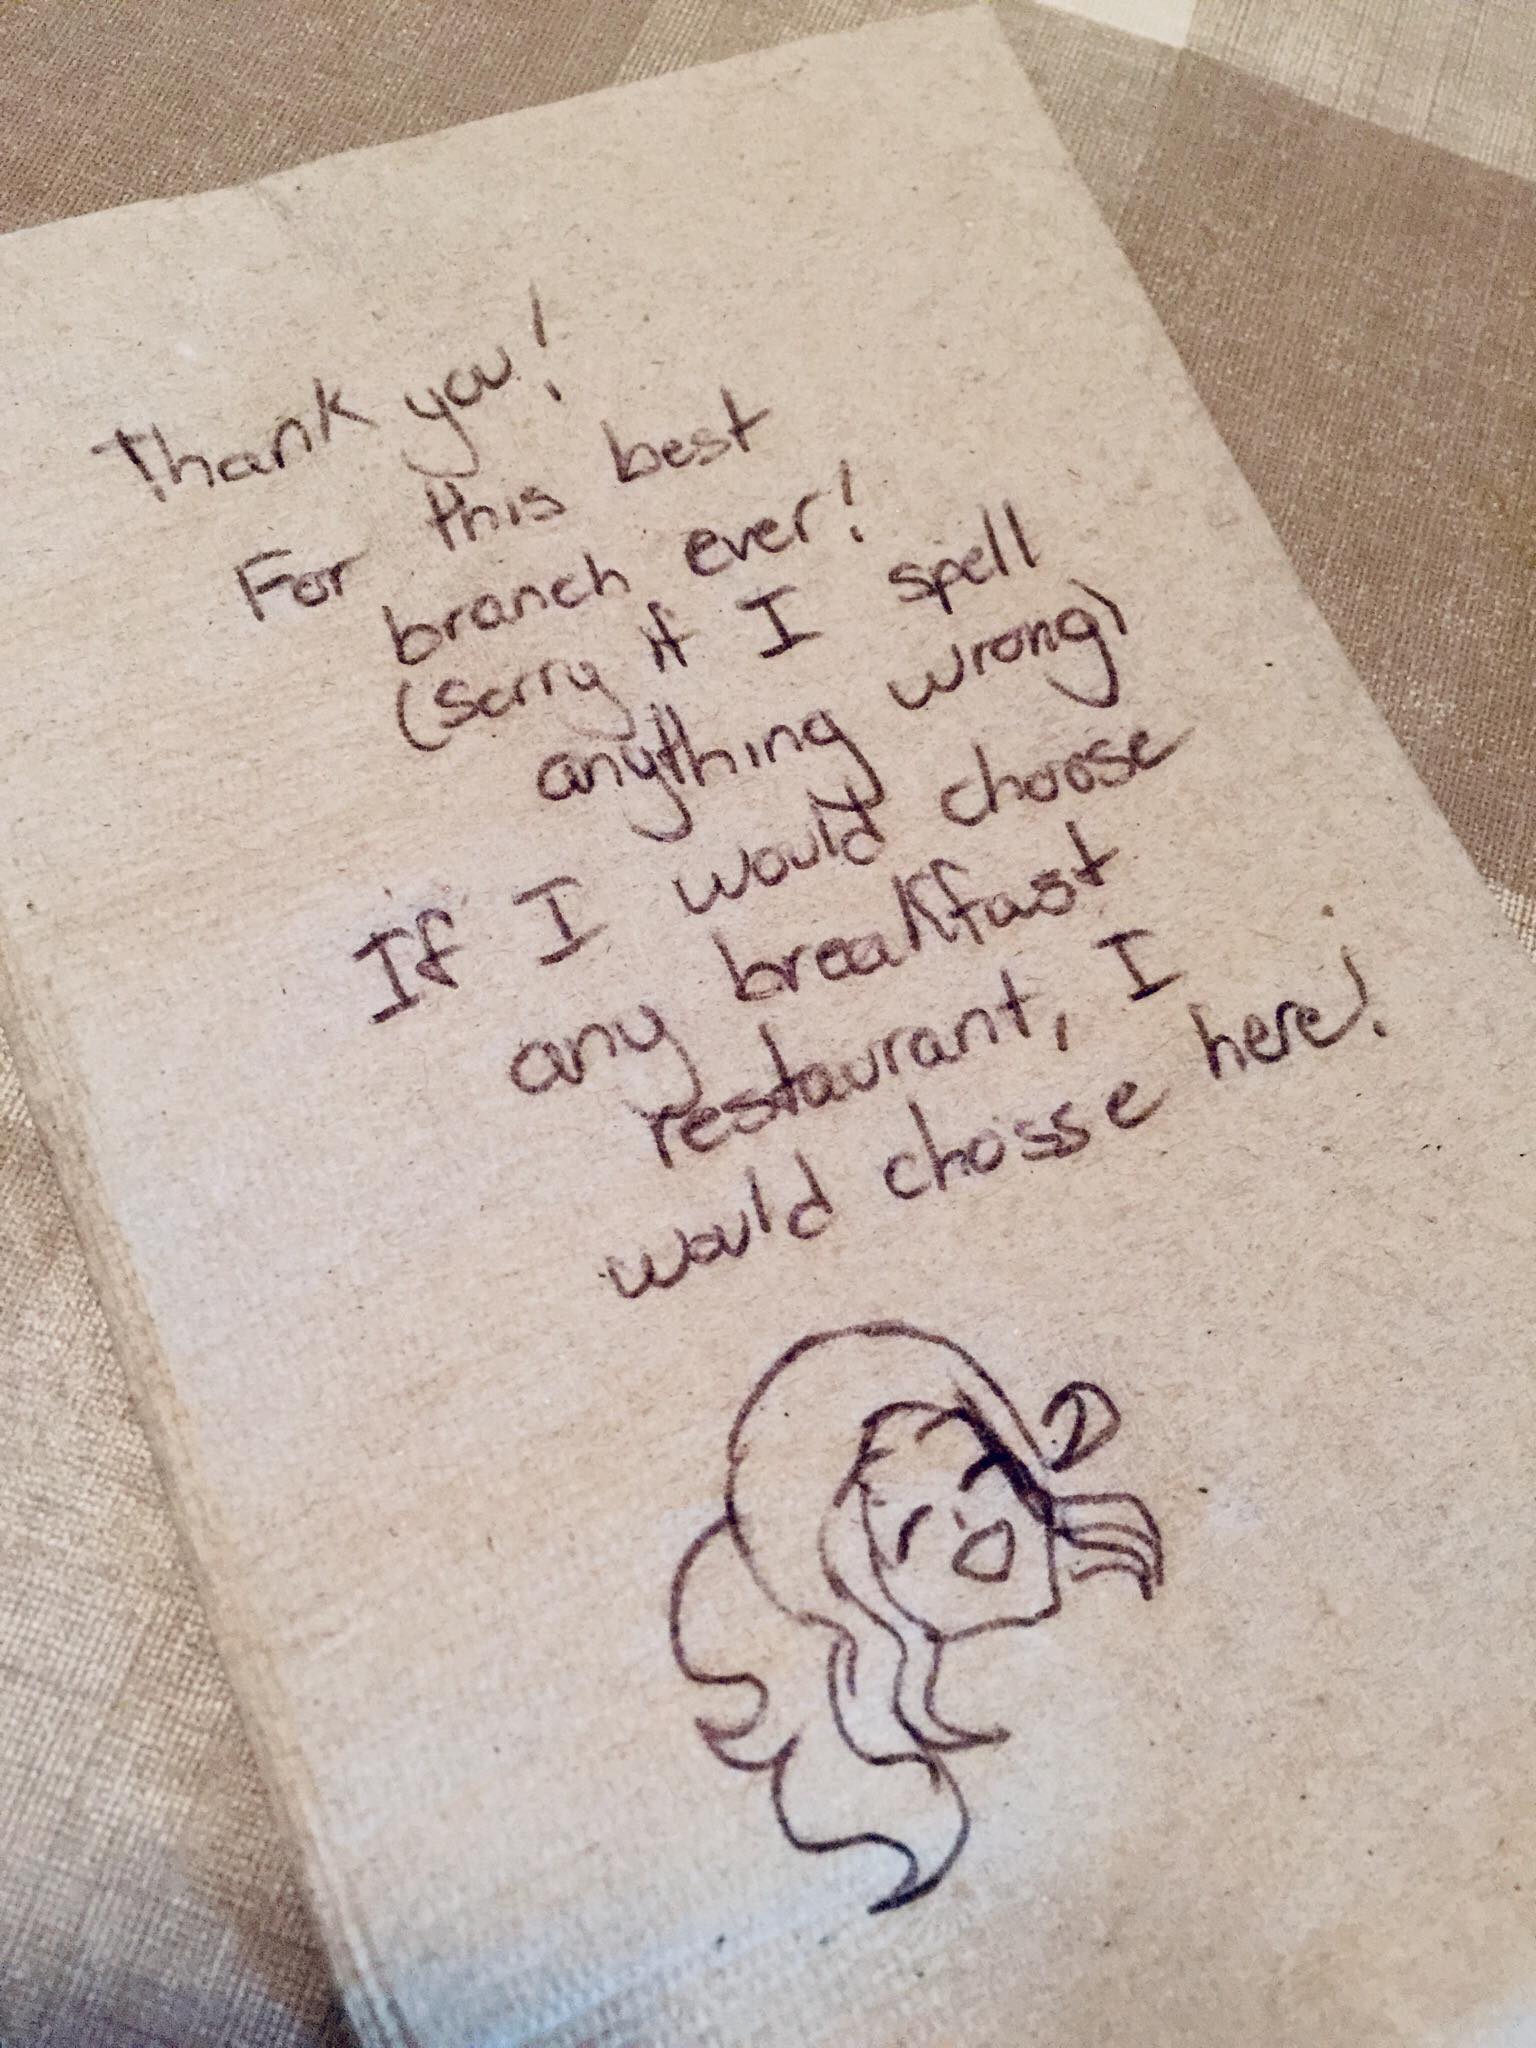 Thank you!
For this best
branch ever!
(Sorry if I spell
anything wrong)
If I would choose
any breakfast
restaurant, I
would chosse here!